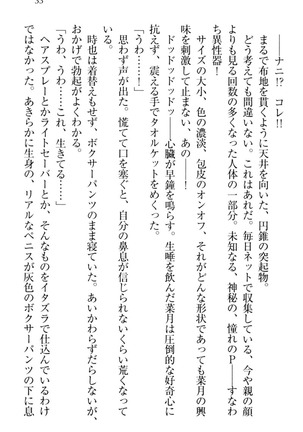 33
――ナニ!? コレ!!
まるで布地を貫くように天井を向いた、円錐の突起物。
どう考えても間違いない。これはあれだ。毎日ネットで収集している、今や親の顔
よりも見る回数の多くなった人体の一部分。未知なる、神秘の、憧れのP――すなわ
ち異性器!
サイズの大小、色の濃淡、包皮のオンオフ、それがどんな形状であっても菜月の興
味を刺激して止まない、あの――。
ドッドッドッドッ――心臓が早鐘を鳴らす。生唾を飲んだ菜月は圧倒的な好奇心に
抗えず、震える手でタオルケットをめくった。
「うわ……!」
思わず声が出た。慌てて口を塞ぐと、自分の鼻息が信じられないくらい荒くなって
時也は着替えもせず、ボクサーパンツのまま寝ていた。あいかわらずだらしないが、
おかげで勃起がよくわかる。
「うわ、うわ……これ、生きてる……」
ヘアスプレーとかライトセーバーとか、そんなものをイタズラで仕込んでいるわけ
ではない。あきらかに生身の、リアルなペニスが灰色のボクサーパンツの下に息